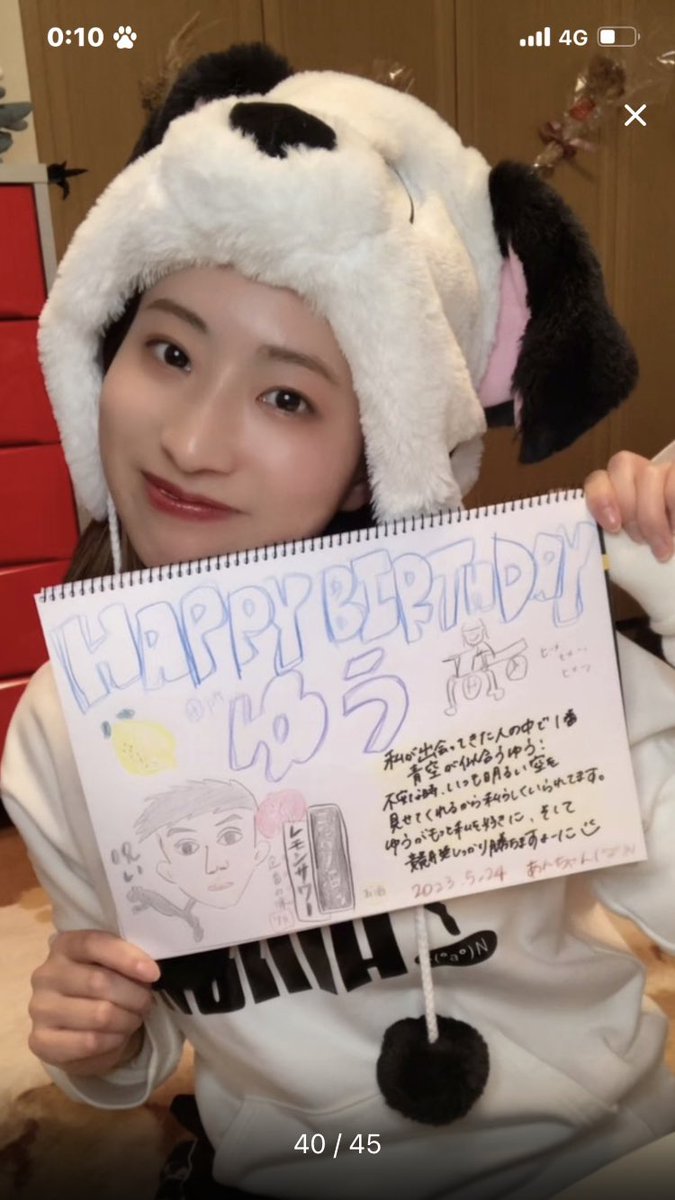 0:10
4G
HAPPY BIRTHDAY
ゆう
私が出会ってきた人の中で1番
青空が似合うゆう!
不安な時、いつも明るい空を
見せてくれるから私らしくいられてます。
ゆうがもっと私を好きに、そして
競馬しっかり勝ちますよーに
2023.5.24 あんちゃん
レモンサワー
40 / 45